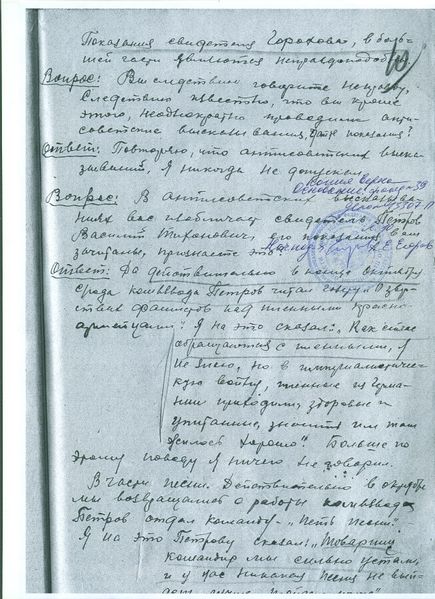 Показания свидетеля Горохова, в боль-
шей части являются неправдоподобн.
Вопрос: Вы следствию говорите неправду,
Следствию известно, что вы кроме
этого, неоднократно проводили анти-
советские высказывания, дайте показания?
Ответ: Повторяю, что антисоветских выска-
зываний, я никогда не допускал.
Копия верна
Вопрос: В антисоветских высказыва-
ниях вас изобличает свидетель Петров
Василий Тиханович, его показания вам
зачитаны, признаете это?
Егоров
Ответ: Да действительно в конце октября
среда комвзвода Петров читал газету О звер-
ствах фашистов над пленными красно-
армейцами. Я на это сказал: "Как сейчас
обращаются с пленными, я
не знаю, но в империалистичес-
кую войну, пленные из Герма-
нии приходили, здоровые и
упитанные, значит им там
жилось хорошо". Больше по
этому поводу я ничего не говорил.
В части песни. Действительно в октябре
мы возвращались с работы комвзвода
Петров отдал команду - "петь песни".
Я на это Петрову сказал: "Товарищ
командир мы сильно устали,
и у нас никакой песни не вый-